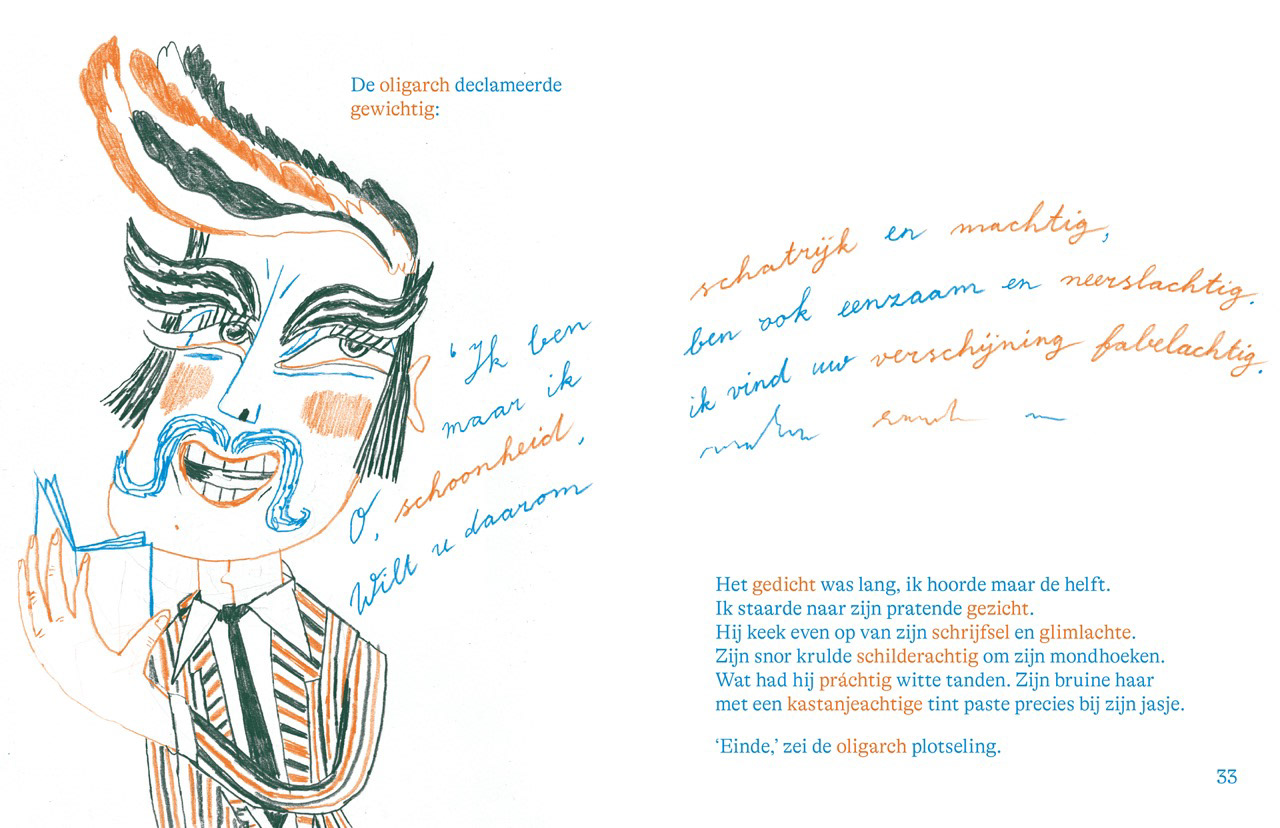 De oligarch declameerde
gewichtig:
‘Ik ben schatrijk en machtig,
maar ik ben ook eenzaam en neerslachtig.
O, schoonheid, ik vind uw verschijning fabelachtig.
Wilt u daarom
Het gedicht was lang, ik hoorde maar de helft.
Ik staarde naar zijn pratende gezicht.
Hij keek even op van zijn schrijfsel en glimlachte.
Zijn snor krulde schilderachtig om zijn mondhoeken.
Wat had hij práchtig witte tanden. Zijn bruine haar
met een kastanjeachtige tint paste precies bij zijn jasje.
‘Einde,’ zei de oligarch plotseling.
33